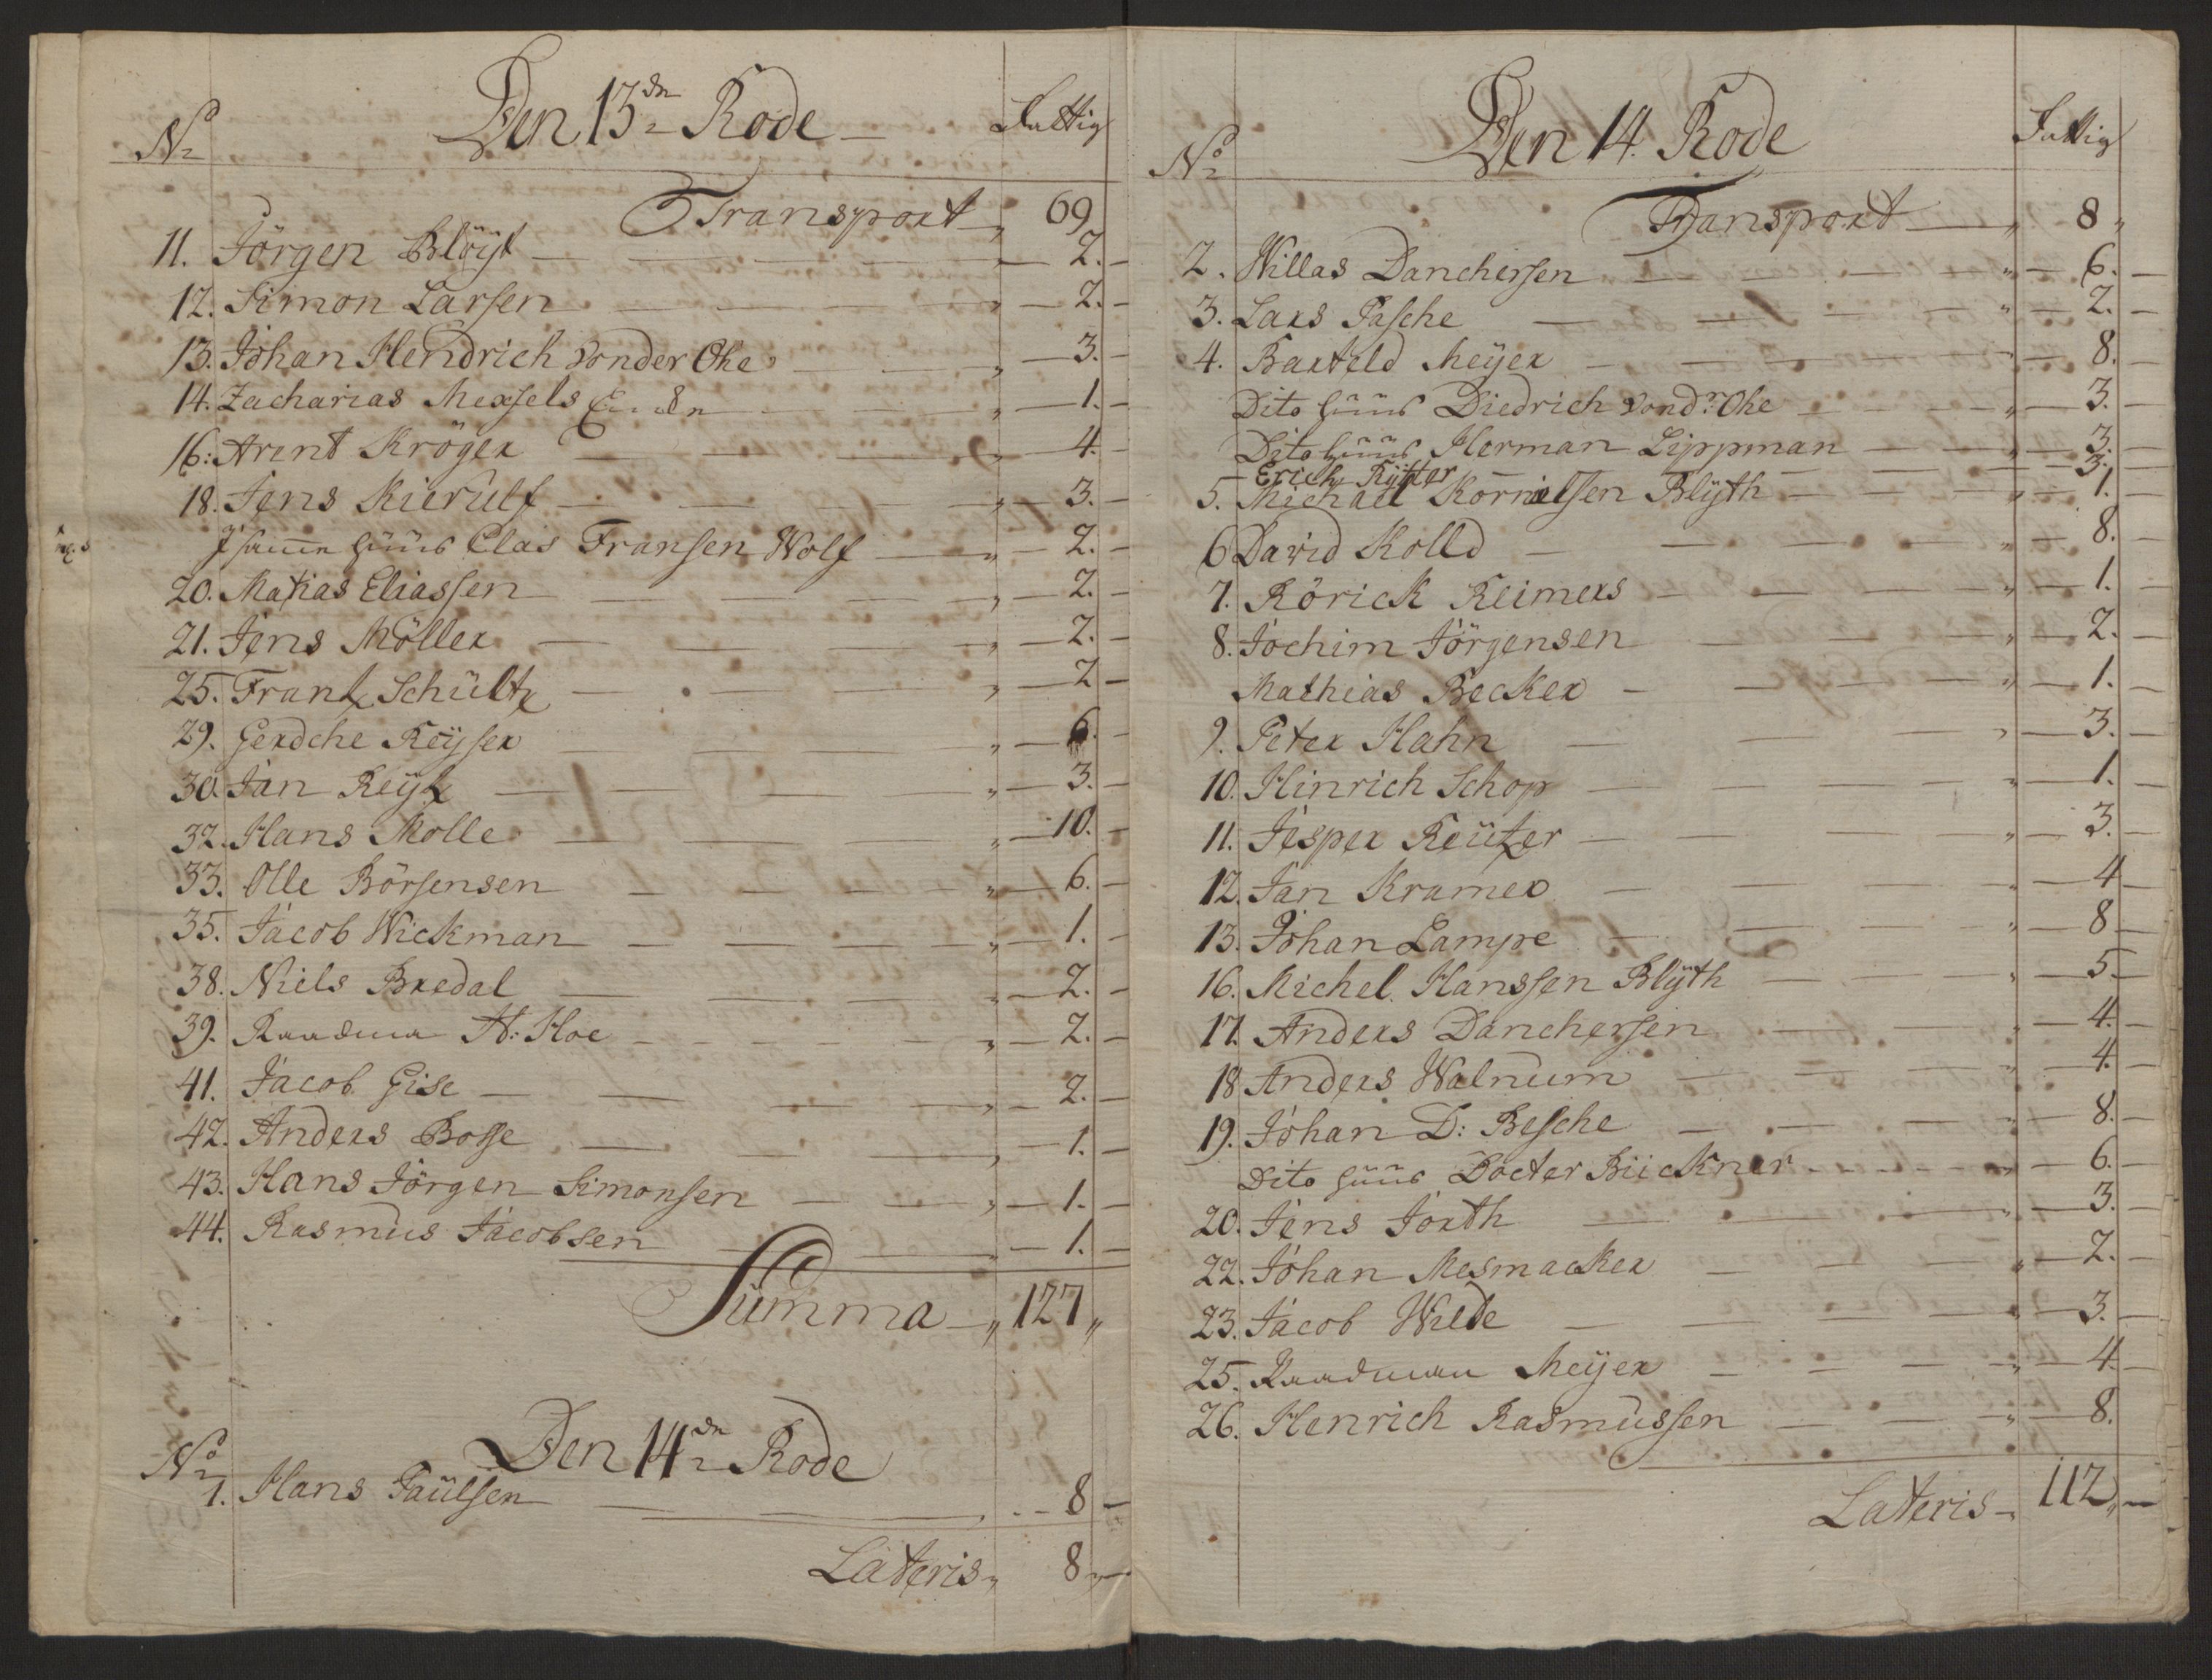 No Den 13de Rode Fattig
Transport 69
11. Jörgen Blöyt 2.
12. Simon Larsen 2.
13. Johan Hendrich Vonder Ohe 3.
14. Zacharias Mexsels Enke 1.
16: Arent Kröger 4.
18. Jens Kierulf 3.
J samme Huus Clas Fransen Wolf 2.
20. Matias Eliassen 2.
21. Jens Möller 2.
25. Frantz Schültz 2
29. Gerdche Reyser 6.
30. Jan Reytz 3.
32. Hans Molle 10.
33. Olle Börsensen 6.
35. Jacob Wickman 1.
38. Niels Bredal 2.
39. Raadman A: Hoe 2.
41. Jacob Gise 2.
42. Anders Bosse 1.
43. Hans Jörgen Simonsen 1.
44. Rasmus Jacobsen 1.
Summa 127
No Den 14de Rode
1. Hans Paülsen 8
Lateris 8
No Den 14. Rode Fattig
Transport 8
2. Willas Danchersen 6.
3. Lars Pasche 2.
4. Barteld Meyer 8.
Dito Huus Diedrich Vondr Ohe 3.
Dito Huus Herman Lippman 3.
Erich Rytter 3.
5. Michael Kornelsen Blyth 1.
6 David Kolld 8.
7. Rörick Reimers 1.
8. Jochim Jörgensen 2.
Mathias Becker 1.
9. Peter Hahn 3.
10. Hinrich Schop 1.
11. Jesper Reützer 3.
12. Jan Kramer 4
13. Johan Lampe 8
16. Michel Hanssen Blyth 5
17. Anders Danchersen 4.
18 Anders Walnum 4.
19. Johan D: Besche 8.
Dito Huus Docter Büchner 6.
20. Jens Jorth 3.
22. Johan Mesmacker 2.
23. Jacob Wilde 3.
25. Raadman Meyer 4.
26. Henrich Rasmussen 8.
Lateris 112